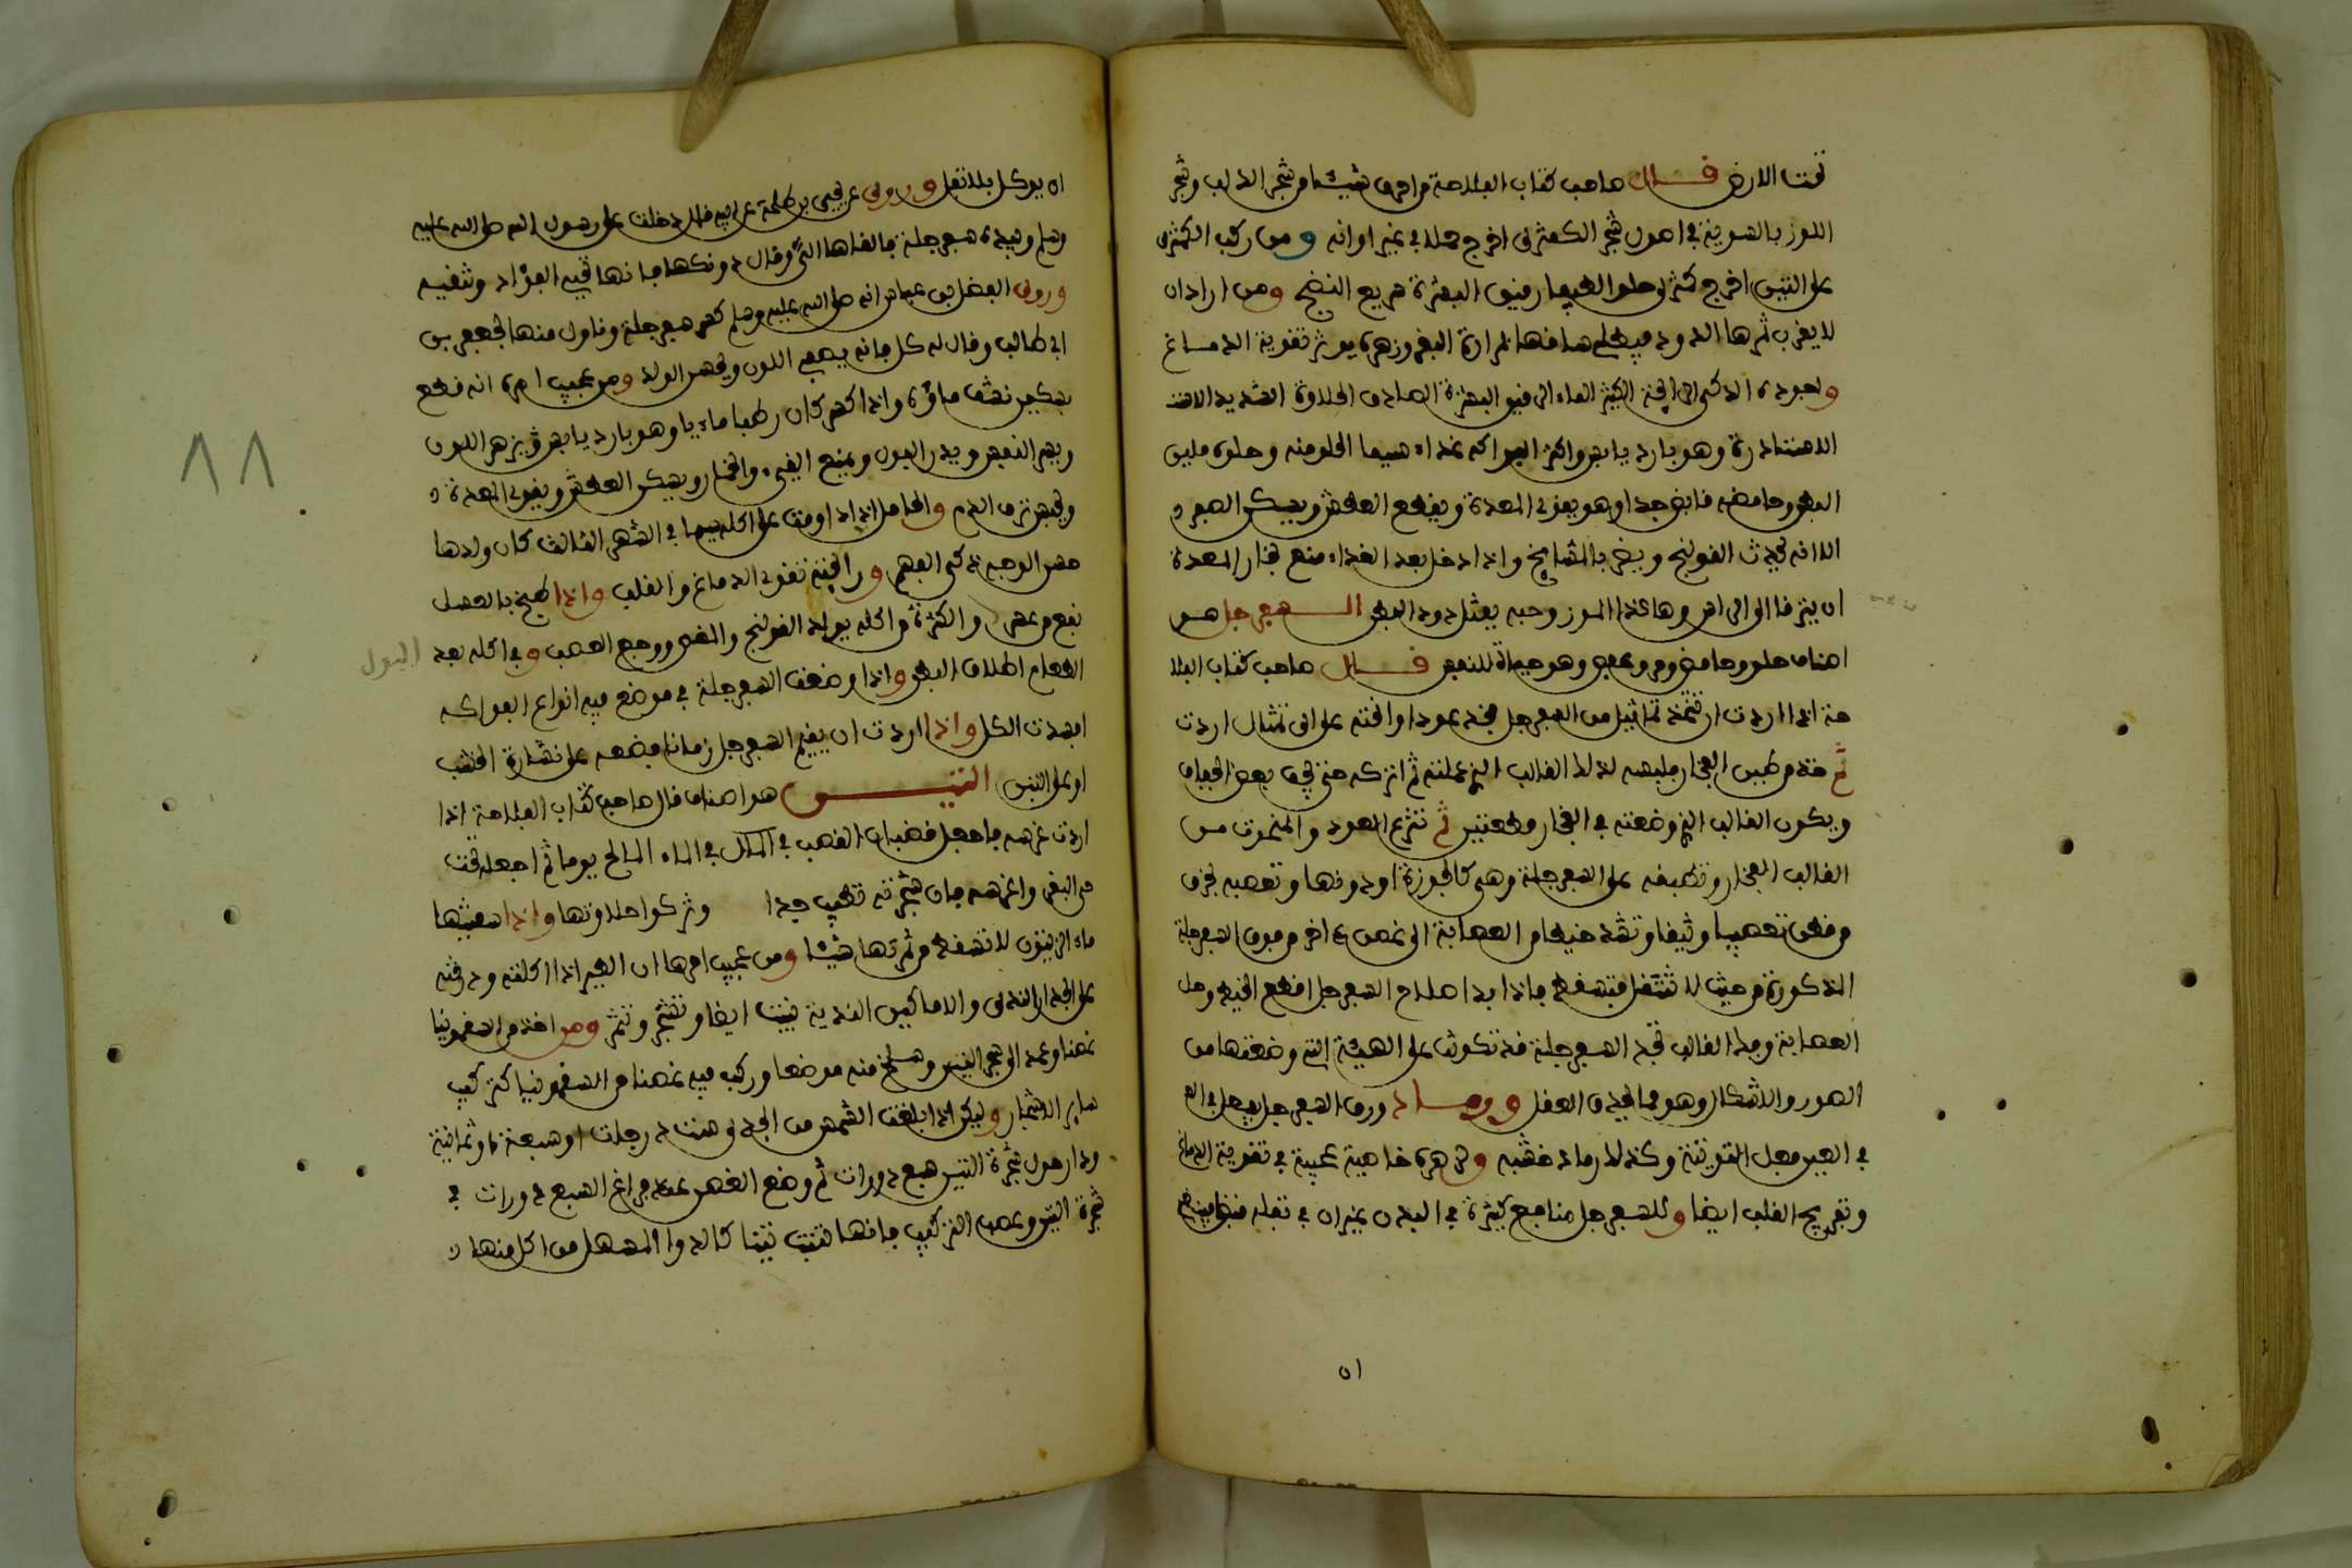 تحت الارض قال صاحب كتاب الفلاحة من احرق شيئا من شجر الدلب وشجر
اللوز بالسوية في اصول شجر الكمثرى اخرج حملا في غير اوانه ومن ركب الكمثرى
على التين اخرج كمثرى حلو الطعم رقيق البشرة سريع النضج ومن اراد ان
لا يقرب ثمرها الدود فيطلي ساقها بمرارة البقر وزهره يوثر تقوية الدماغ
واجوده الذكي الرائحة الكثير الماء الرقيق البشرة الصادق الحلاوة الشديد الاستـ
الاستدارة وهو بارد يابس واكثر الفواكه غذاء سيما الحلو منه وحلوه ملين
البطن وحامضه قابض جدا وهو يقوي المعدة ويقطع العطش ويسكن الصفرء
الا انه يحدث القولنج ويضر بالمشايخ واذا دخل بعد الغذاء منع بخار المعدة
ان يترقا الى الراس وهاكذا الموز وحبه يقتل دود البطن السفرجل هو
اصناف حلو وحامض ومر وعفص وهو حياة للنفس قال صاحب كتاب الفلا
حة اذا اردت ان تتخذ تماثيل من السفرجل فخذ عودا وانحته على اي تمثال اردت
ثم خذ من طين الفخار فلبسه لذلك القالب الذي عملته ثم اتركه حتى يجف بعض الجفاف
ويكون القالب الذي وضعته في الفخار قطعتين ثم تنزع العود والمنحوت من
القالب الفخار وتطبقه على السفرجلة وهي كالجوزة او دونها وتعصبه بخرق
من قطن تعصيبا وثيقا وتشد خيطا من العصابة الى غصن ءاخر من فوق السفرجلة
المذكورة من حيث لا تتثقل فتسقط فاذا بدا صلاح السفرجل اقطع الخيط وحل
العصابة وفك القالب تجد السفرجلة قد تكونت على الهيئة التي وضعتها من
الصور والاشكال وهو مما يحير العقل ورماد ورق السفرجل يفعل في العـ
في العين فعل التوتية وكذلك رماد خشبه ولزهره خاصية عجيبة في تقوية الدماغ
وتفريح القلب ايضا وللسفرجل منافع كثيرة في البدن غير ان في ثقله
ان يوكل بلا ثقل وروى عن يحيى بن طلحة عن ابيه قال دخلت على رسول الله صلى الله عليه
وسلم وبيده سفرجلة فالقاها الي وقال دونكها فانها تجم الفؤاد وتنقيه
وروى الفضل بن عباس انه صلى الله عليه وسلم كسر سفرجلة وناول منها لجعفر بن
ابي طالب وقال له كل فانه يصفي اللون ويحسن الولد ومن عجيب امره انه قطع
بسكين نشف ماؤه واذا كسر كان رطبا مائيا وهو بارد يابس قابض يزهر اللون
ويسر النفس ويدر البول ويمنع القيء والخمار ويسكن العطش ويقوي المعدة و
ويحبس نزف الدم والحامل اذا داومت على اكله سيما في الشهر الثالث كان ولدها
حسن الوجه ذكي الفهم ورائحته تقوي الدماغ والقلب واذا طبخ بالعسل
نفع من عسر والكثرة من اكله يولد القولنج والمغص ووجع العصب وفي اكله بعد
البول
الطعام اطلاق البطن واذا وضعت السفرجلة في موضع فيه انواع الفواكه
افسدت الكل واذا اردت ان يقيم السفرجل زمانا فضعه على نشارة الخشب
او على التبن التيـــن هو اصناف قال صاحب كتاب الفلاحة اذا
اردت غرسه فاجعل قضبان القصب في المكان في الماء المالح يوما ثم اجعله تحت
خثى البقر واغرسه فان شجرته تطيب جدا وتزكوا حلاوتها واذا سقيتها
ماء الزيتون لا تسقط من ثمرتها شيئا ومن عجيب امرها ان الطير اذا اكلته وذرقته
على الجدار الندى والاماكين الندية نبتت ايضا وتشجر وتثمر ومن اخذ من السقمونيا
غصنا وعمد الى شجر التين وسلخ منه موضعا وركب فيه غصنا من السقمونيا كتركيب
ساير الاشجار وليكن اذا بلغت الشمس من الجدي ست درجات او سبعة او ثمانية
ودار حول شجرة التين سبع دورات ثم وضع الغصن عند فراغ السبع دورات في
شجرة التين وعصب التركيب فانها تنبت تينا كالدواء المسهل من اكل منها و
٨٨
٥١